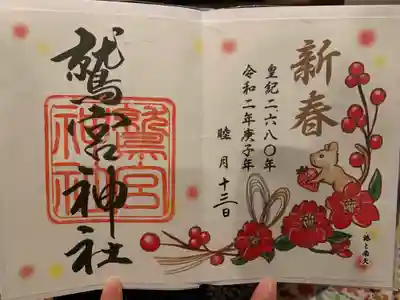 新春
皇紀二六八〇年
令和二年庚子年
睦月十三日
椿と南天
鷲宮神社
鷲宮神社